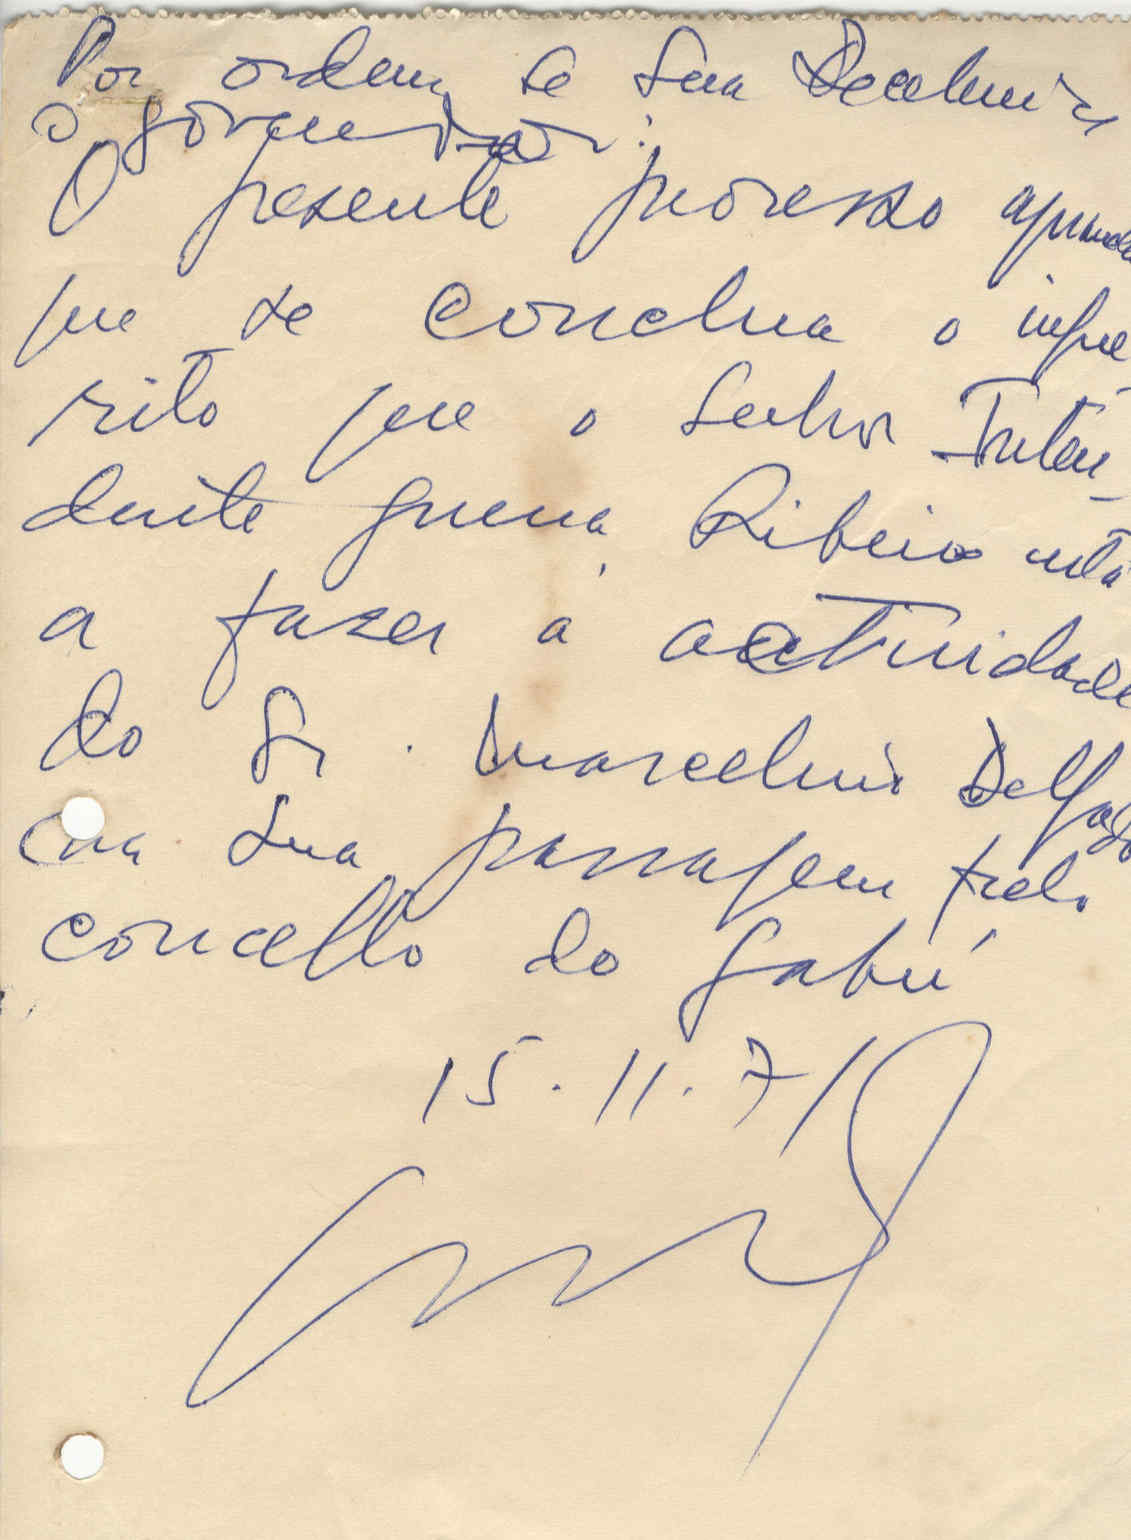 Por ordem de Sua Excelencia
o governador:
O presente processo aguarda
que se conclua o inqué
rito que o Senhor Inten_
dente Guerra Ribeiro está
a fazer à actividade
do Sr. Marcelino Delgado
na sua passagem pelo
concelho do Gabú
15.11.71